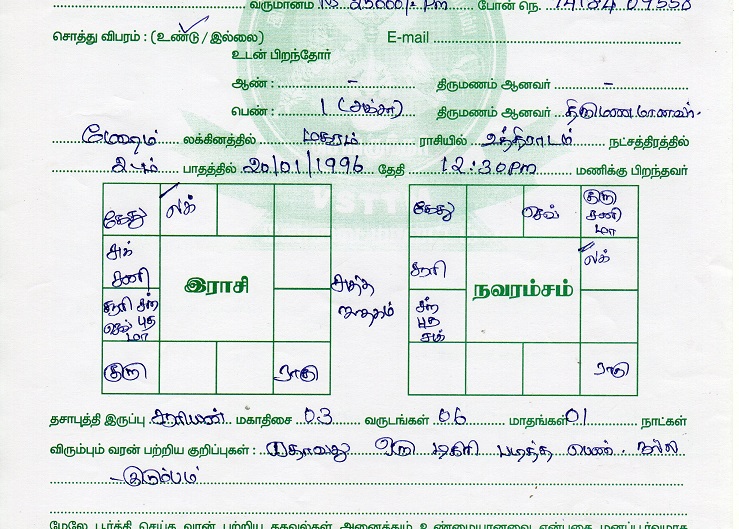 வருமானம் Rs 25000/- Pm போன் நெ.
சொத்து விபரம் : (உண்டு / இல்லை) E-mail
உடன் பிறந்தோர்
ஆண் : - திருமணம் ஆனவர் -
பெண் : 1 (அக்கா) திருமணம் ஆனவர் திருமணமானவர்.
மேஷம் லக்கினத்தில் மகரம் ராசியில் உத்திராடம் நட்சத்திரத்தில்
2ம் பாதத்தில் 20/01/1996 தேதி 12:30Pm மணிக்கு பிறந்தவர்
கேது லக்
சுக் சனி
இராசி
சூரி சந் செவ் புத மா
குரு ராகு
சுத்த ஜாதகம்
கேது செவ் குரு சனி மா
சூரி லக்
நவரம்சம்
சந் புத சுக்
ராகு
தசாபுத்தி இருப்பு சூரியன் மகாதிசை 03 வருடங்கள் 06 மாதங்கள் 01 நாட்கள்
விரும்பும் வரன் பற்றிய குறிப்புகள் : ஏதாவது ஒரு டிகிரி படித்த பெண். நல்ல
குடும்பம்
மேலே பூர்த்தி செய்த வரன் பற்றிய தகவல்கள் அனைத்தும் உண்மையானவை என்பதை மனப்பூர்வமாக